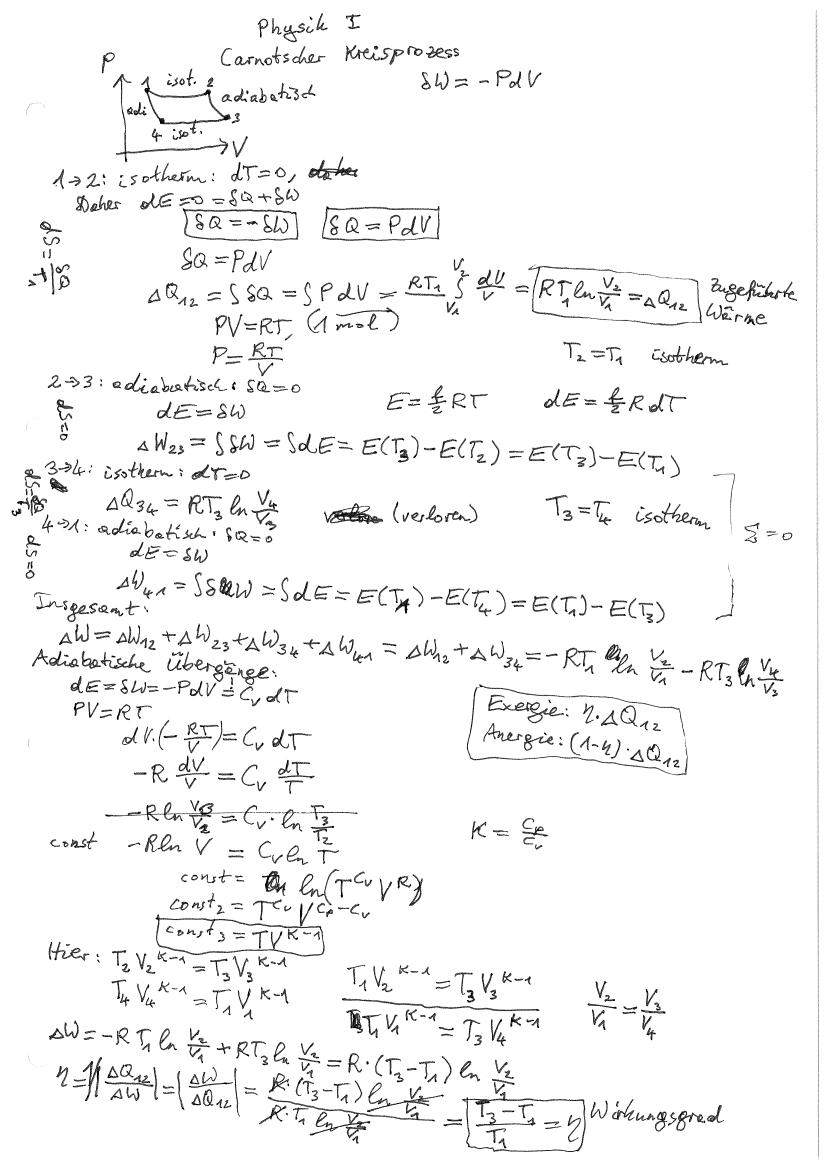 Physik I
Carnotscher Kreisprozess
P
1 isot. 2
adiabatisch
adi
4 isot. 3
V
δW = -PdV
1→2: isotherm: dT=0, daher
Daher dE=0=δQ+δW
δQ=-δW δQ=PdV
dS=δQ/T₁
δQ=PdV
ΔQ₁₂ = ∫δQ = ∫PdV = RT₁ ∫_{V₁}^{V₂} dV/V = RT₁ ln V₂/V₁ = ΔQ₁₂ zugeführte Wärme
PV=RT, (1 mol)
P=RT/V T₂=T₁ isotherm
2→3: adiabatisch: δQ=0
dS=0
dE=δW E=f/2 RT dE=f/2 R dT
ΔW₂₃ = ∫δW = ∫dE = E(T₃)-E(T₂) = E(T₃)-E(T₁)
3→4: isotherm: dT=0
dS=δQ/T₃
ΔQ₃₄ = RT₃ ln V₄/V₃ (verloren) T₃=T₄ isotherm
Σ=0
4→1: adiabatisch: δQ=0
dS=0
dE=δW
ΔW₄₁ = ∫δW = ∫dE = E(T₁)-E(T₄) = E(T₁)-E(T₃)
Insgesamt:
ΔW=ΔW₁₂+ΔW₂₃+ΔW₃₄+ΔW₄₁ = ΔW₁₂+ΔW₃₄ = -RT₁ ln V₂/V₁ - RT₃ ln V₄/V₃
Adiabatische Übergänge:
dE=δW=-PdV = C_v dT
PV=RT
Exergie: η·ΔQ₁₂
Anergie: (1-η)·ΔQ₁₂
dV·(-RT/V)=C_v dT
-R dV/V = C_v dT/T
-R ln V₃/V₂ = C_v·ln T₃/T₂
κ = C_p/C_v
const -R ln V = C_v ln T
const = ln(T^{C_v} V^R)
const₂ = T^{C_v} V^{C_p-C_v}
const₃ = TV^{κ-1}
Hier: T₂V₂^{κ-1}=T₃V₃^{κ-1}
T₄V₄^{κ-1}=T₁V₁^{κ-1}
T₁V₂^{κ-1}=T₃V₃^{κ-1}
T₁V₁^{κ-1}=T₃V₄^{κ-1}
V₂/V₁=V₃/V₄
ΔW=-RT₁ ln V₂/V₁ + RT₃ ln V₂/V₁ = R·(T₃-T₁) ln V₂/V₁
η=|ΔQ₁₂/ΔW|=|ΔW/ΔQ₁₂| = R·(T₃-T₁) ln V₂/V₁ / R·T₁ ln V₂/V₁ = T₃-T₁/T₁ = η Wirkungsgrad